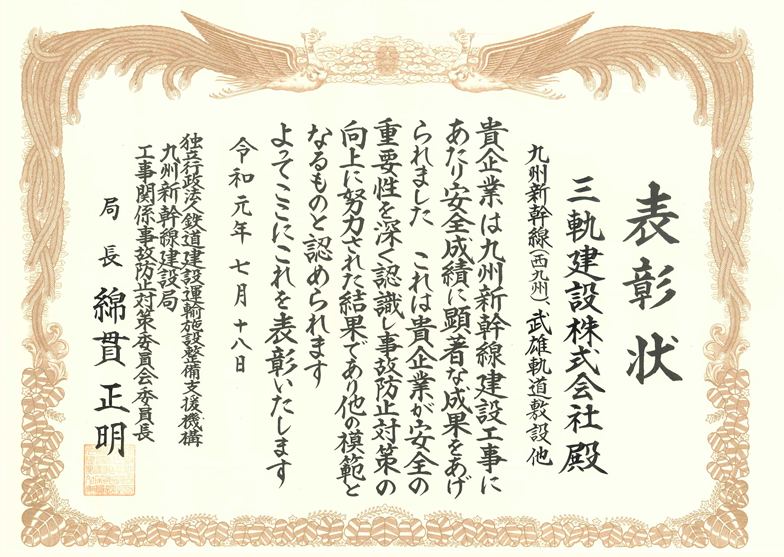 表彰状
三軌建設株式会社 殿
九州新幹線(西九州)、武雄軌道敷設他
貴企業は九州新幹線建設工事に
あたり安全成績に顕著な成果をあげ
られました これは貴企業が安全の
重要性を深く認識し事故防止対策の
向上に努力された結果であり他の模範と
なるものと認められます
よってここにこれを表彰いたします
令和元年七月十八日
独立行政法人鉄道建設運輸施設整備支援機構
九州新幹線建設局
工事関係事故防止対策委員会委員長
局長 綿貫正明